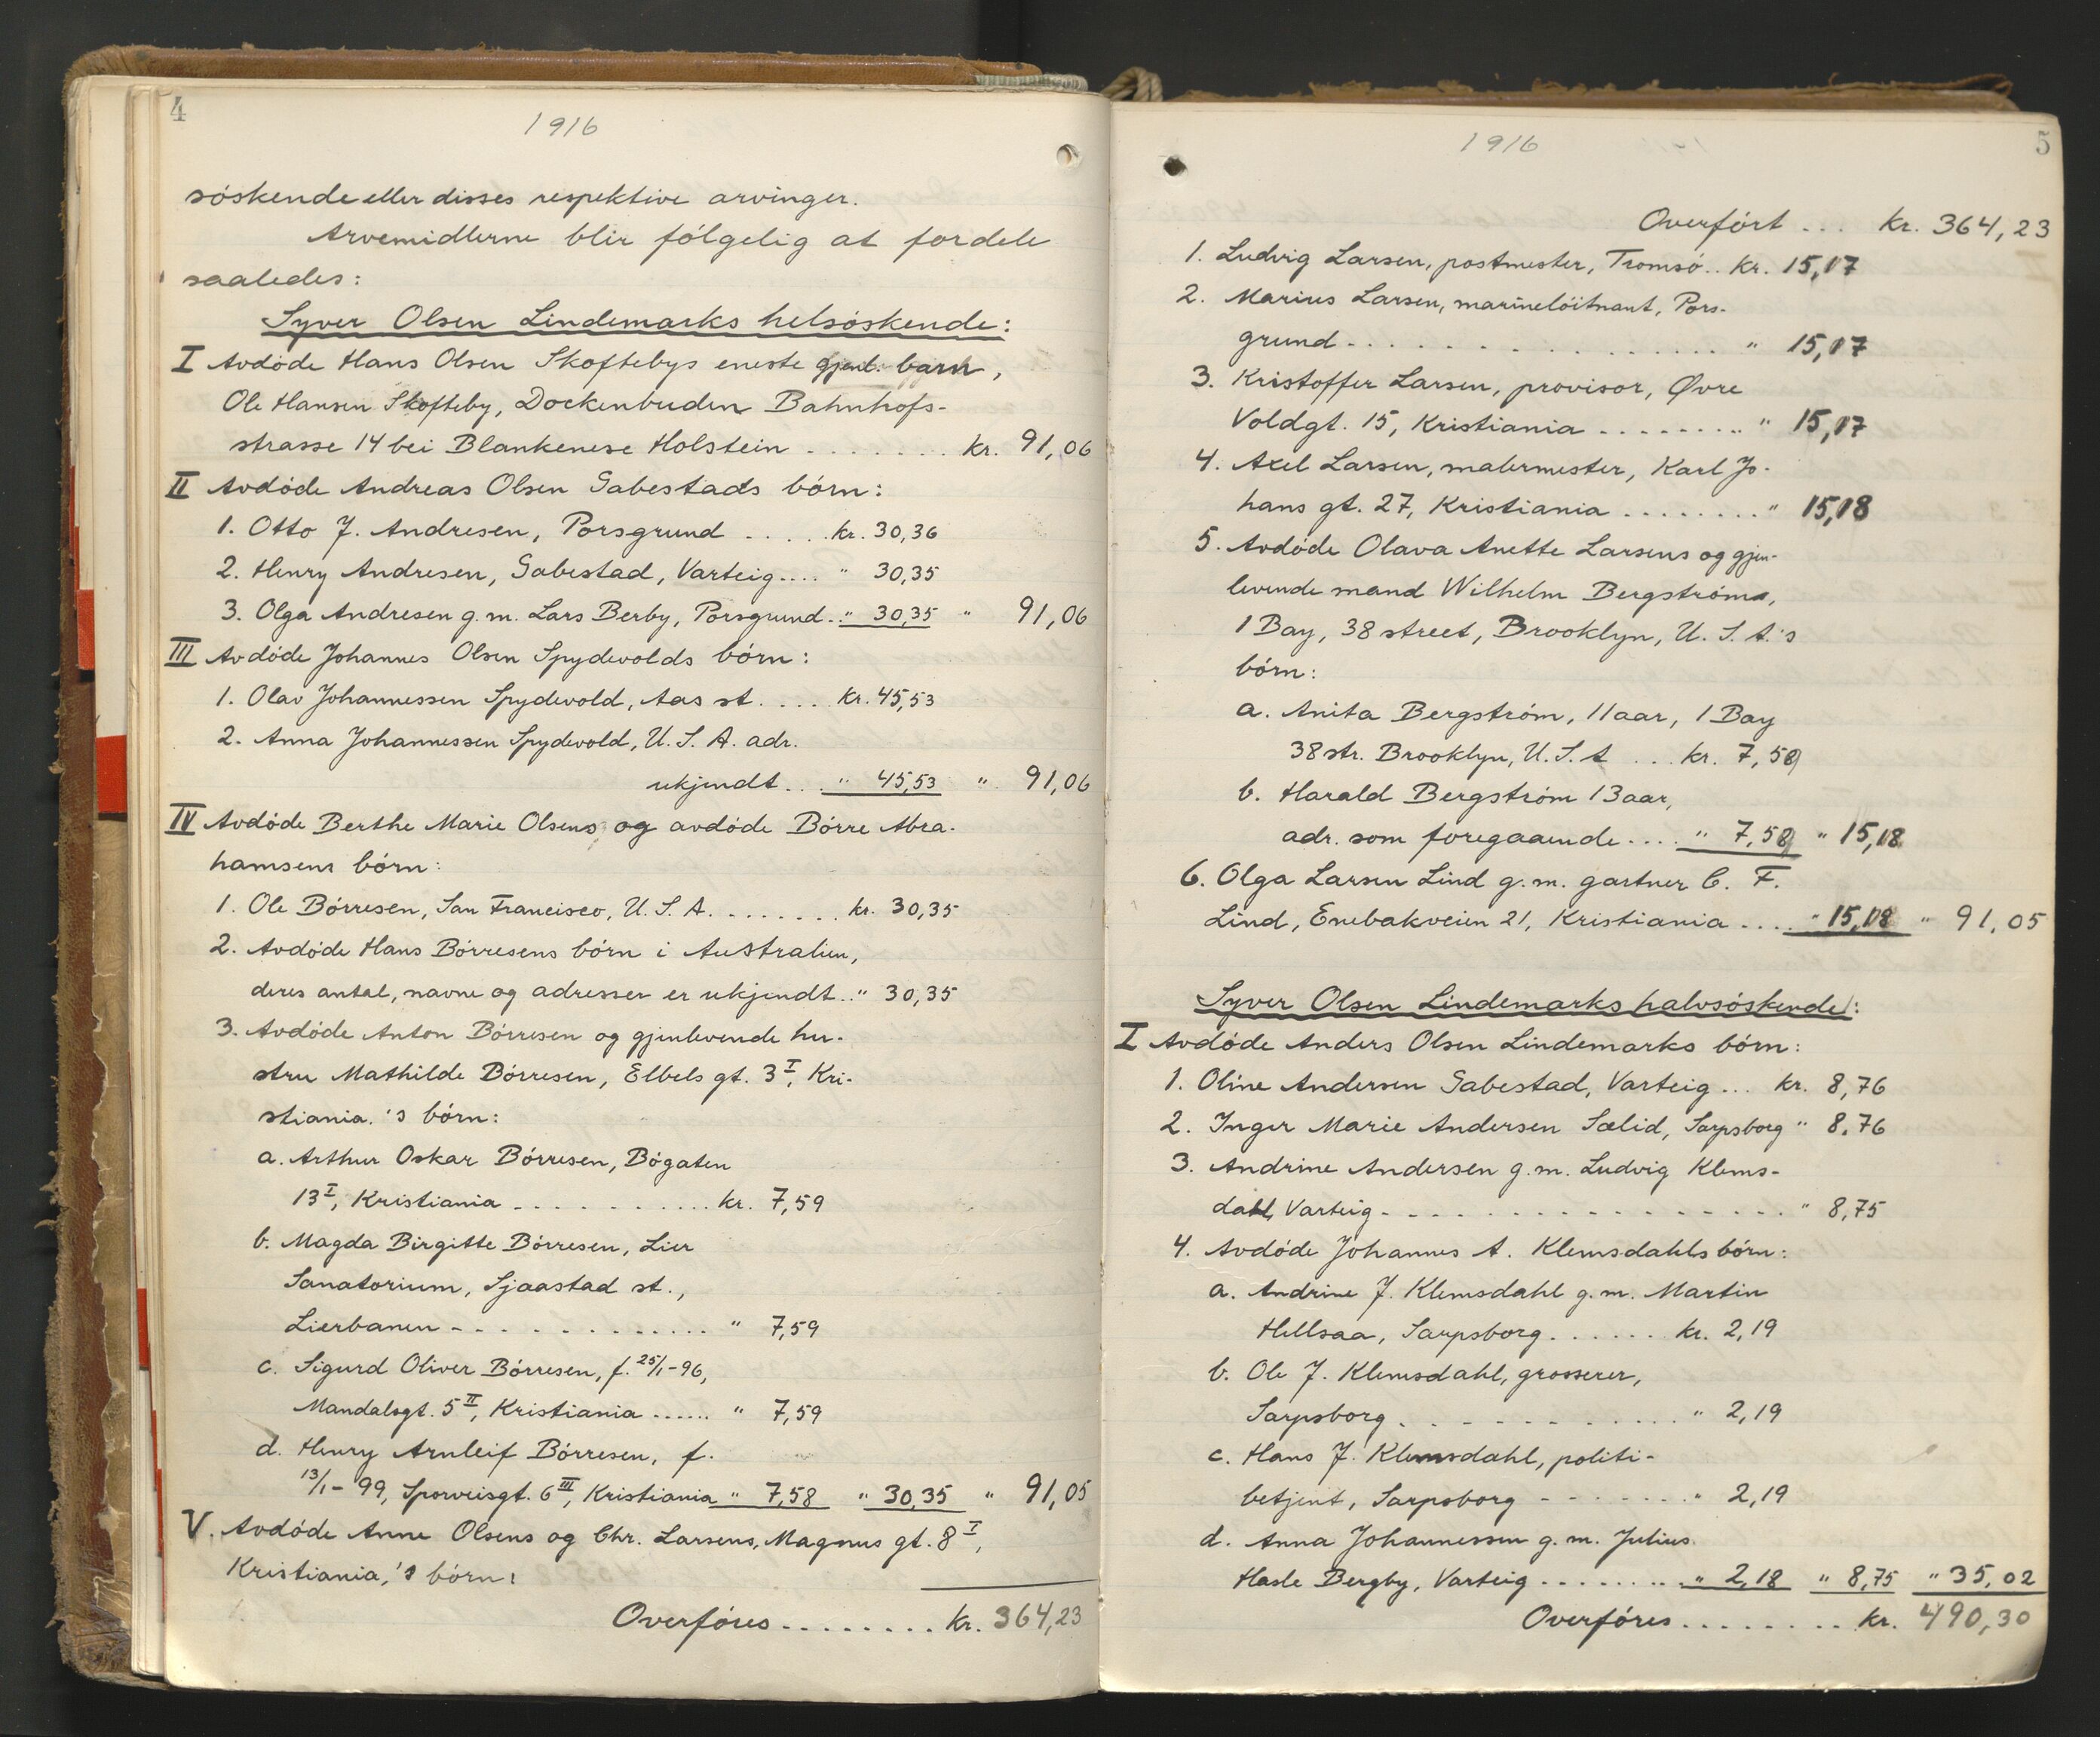 4
1916
söskende eller disses respektive arvinger.
Arvemidlerne blir fölgelig at fordele
saaledes:
Syver Olsen Lindemarks helsöskende:
I Avdöde Hans Olsen Skoftebys eneste gjenl. barn,
Ole Hansen Skofteby, Dockenhuden Bahnhofs-
strasse 14 bei Blankenese Holstein . . . . . . . kr. 91,06
II Avdöde Andreas Olsen Gabestads börn:
1. Otto J. Andresen, Porsgrund . . . . . kr. 30,36
2. Henry Andresen, Gabestad, Varteig.... " 30,35
3. Olga Andresen g. m. Lars Berby, Porsgrund.. " 30,35 " 91,06
III Avdöde Johannes Olsen Spydevolds börn:
1. Olav Johannessen Spydevold, Aas st. . . . . kr. 45,53
2. Anna Johannessen Spydevold, U. S. A. adr.
ukjendt. . . " 45,53 " 91,06
IV Avdöde Berthe Marie Olsens og avdöde Börre Abra-
hamsens börn:
1. Ole Börresen, San Francisco, U. S. A. . . . . . . . kr. 30,35
2. Avdöde Hans Börresens börn i Australien,
deres antal, navne og adresser er ukjendt.. " 30,35
3. Avdöde Anton Börresen og gjenlevende hu-
stru Mathilde Börresen, Elbels gt. 3 I, Kri-
stiania.'s börn:
a. Arthur Oskar Börresen, Bögaten
13 I, Kristiania . . . . . . . . . . . kr. 7,59
b. Magda Birgitte Börresen, Lier
Sanatorium, Sjaastad st.,
Lierbanen - . . . . . . . . . . . . " 7,59
c. Sigurd Oliver Börresen, f. 25/1-96,
Mandalsgt. 5 II, Kristiania ...... " 7,59
d. Henry Arnleif Börresen, f.
13/1-99, Sporveisgt. 6 III, Kristiania " 7,58 " 30,35 " 91,05
V. Avdöde Anne Olsens og Chr. Larsens, Magnus gt. 8 I,
Kristiania,'s börn:
Overföres . . . . . . . . kr. 364,23
5
1916
Overfört . . . kr. 364,23
1. Ludvig Larsen, postmester, Tromsö.. kr. 15,17
2. Marius Larsen, marinelöitnant, Pors-
grund - . . . . . . . . . . . . . . . . " 15,17
3. Kristoffer Larsen, provisor, Øvre
Voldgt. 15, Kristiania . . . . . . . . . " 15,17
4. Axel Larsen, malermester, Karl Jo-
hans gt. 27, Kristiania . . . . . . . . " 15,18
5. Avdöde Olava Anette Larsens og gjen-
levende mand Wilhelm Bergströms,
1 Bay, 38 street, Brooklyn, U. S. A.'s
börn:
a. Anita Bergström, 11 aar, 1 Bay
38 str. Brooklyn, U. S. A . . . kr. 7,59
b. Harald Bergström 13 aar,
adr. som foregaaende . . . . " 7,59 " 15,18
6. Olga Larsen Lind g. m. gartner C. F.
Lind, Enebakveien 21, Kristiania . . . . " 15,18 " 91,05
Syver Olsen Lindemarks halvsöskende:
I Avdöde Anders Olsen Lindemarks börn:
1. Oline Andersen Gabestad, Varteig ... kr. 8,76
2. Inger Marie Andersen Sælid, Sarpsborg " 8,76
3. Andrine Andersen g. m. Ludvig Klems-
dahl, Varteig - . . . . . . . . . . . . . . . . . " 8,75
4. Avdöde Johannes A. Klemsdahls börn:
a. Andrine J. Klemsdahl g. m. Martin
Hellsaa, Sarpsborg . . . . . . . kr. 2,19
b. Ole J. Klemsdahl, grosserer,
Sarpsborg . . . . . . . . . . . . . " 2,19
c. Hans J. Klemsdahl, politi-
betjent, Sarpsborg - - - . . . . " 2,19
d. Anna Johannessen g. m. Julius
Hasle Bergby, Varteig . . . . . . . . . " 2,18 " 8,75 " 35,02
Overföres . . . . . . . . kr. 490,30